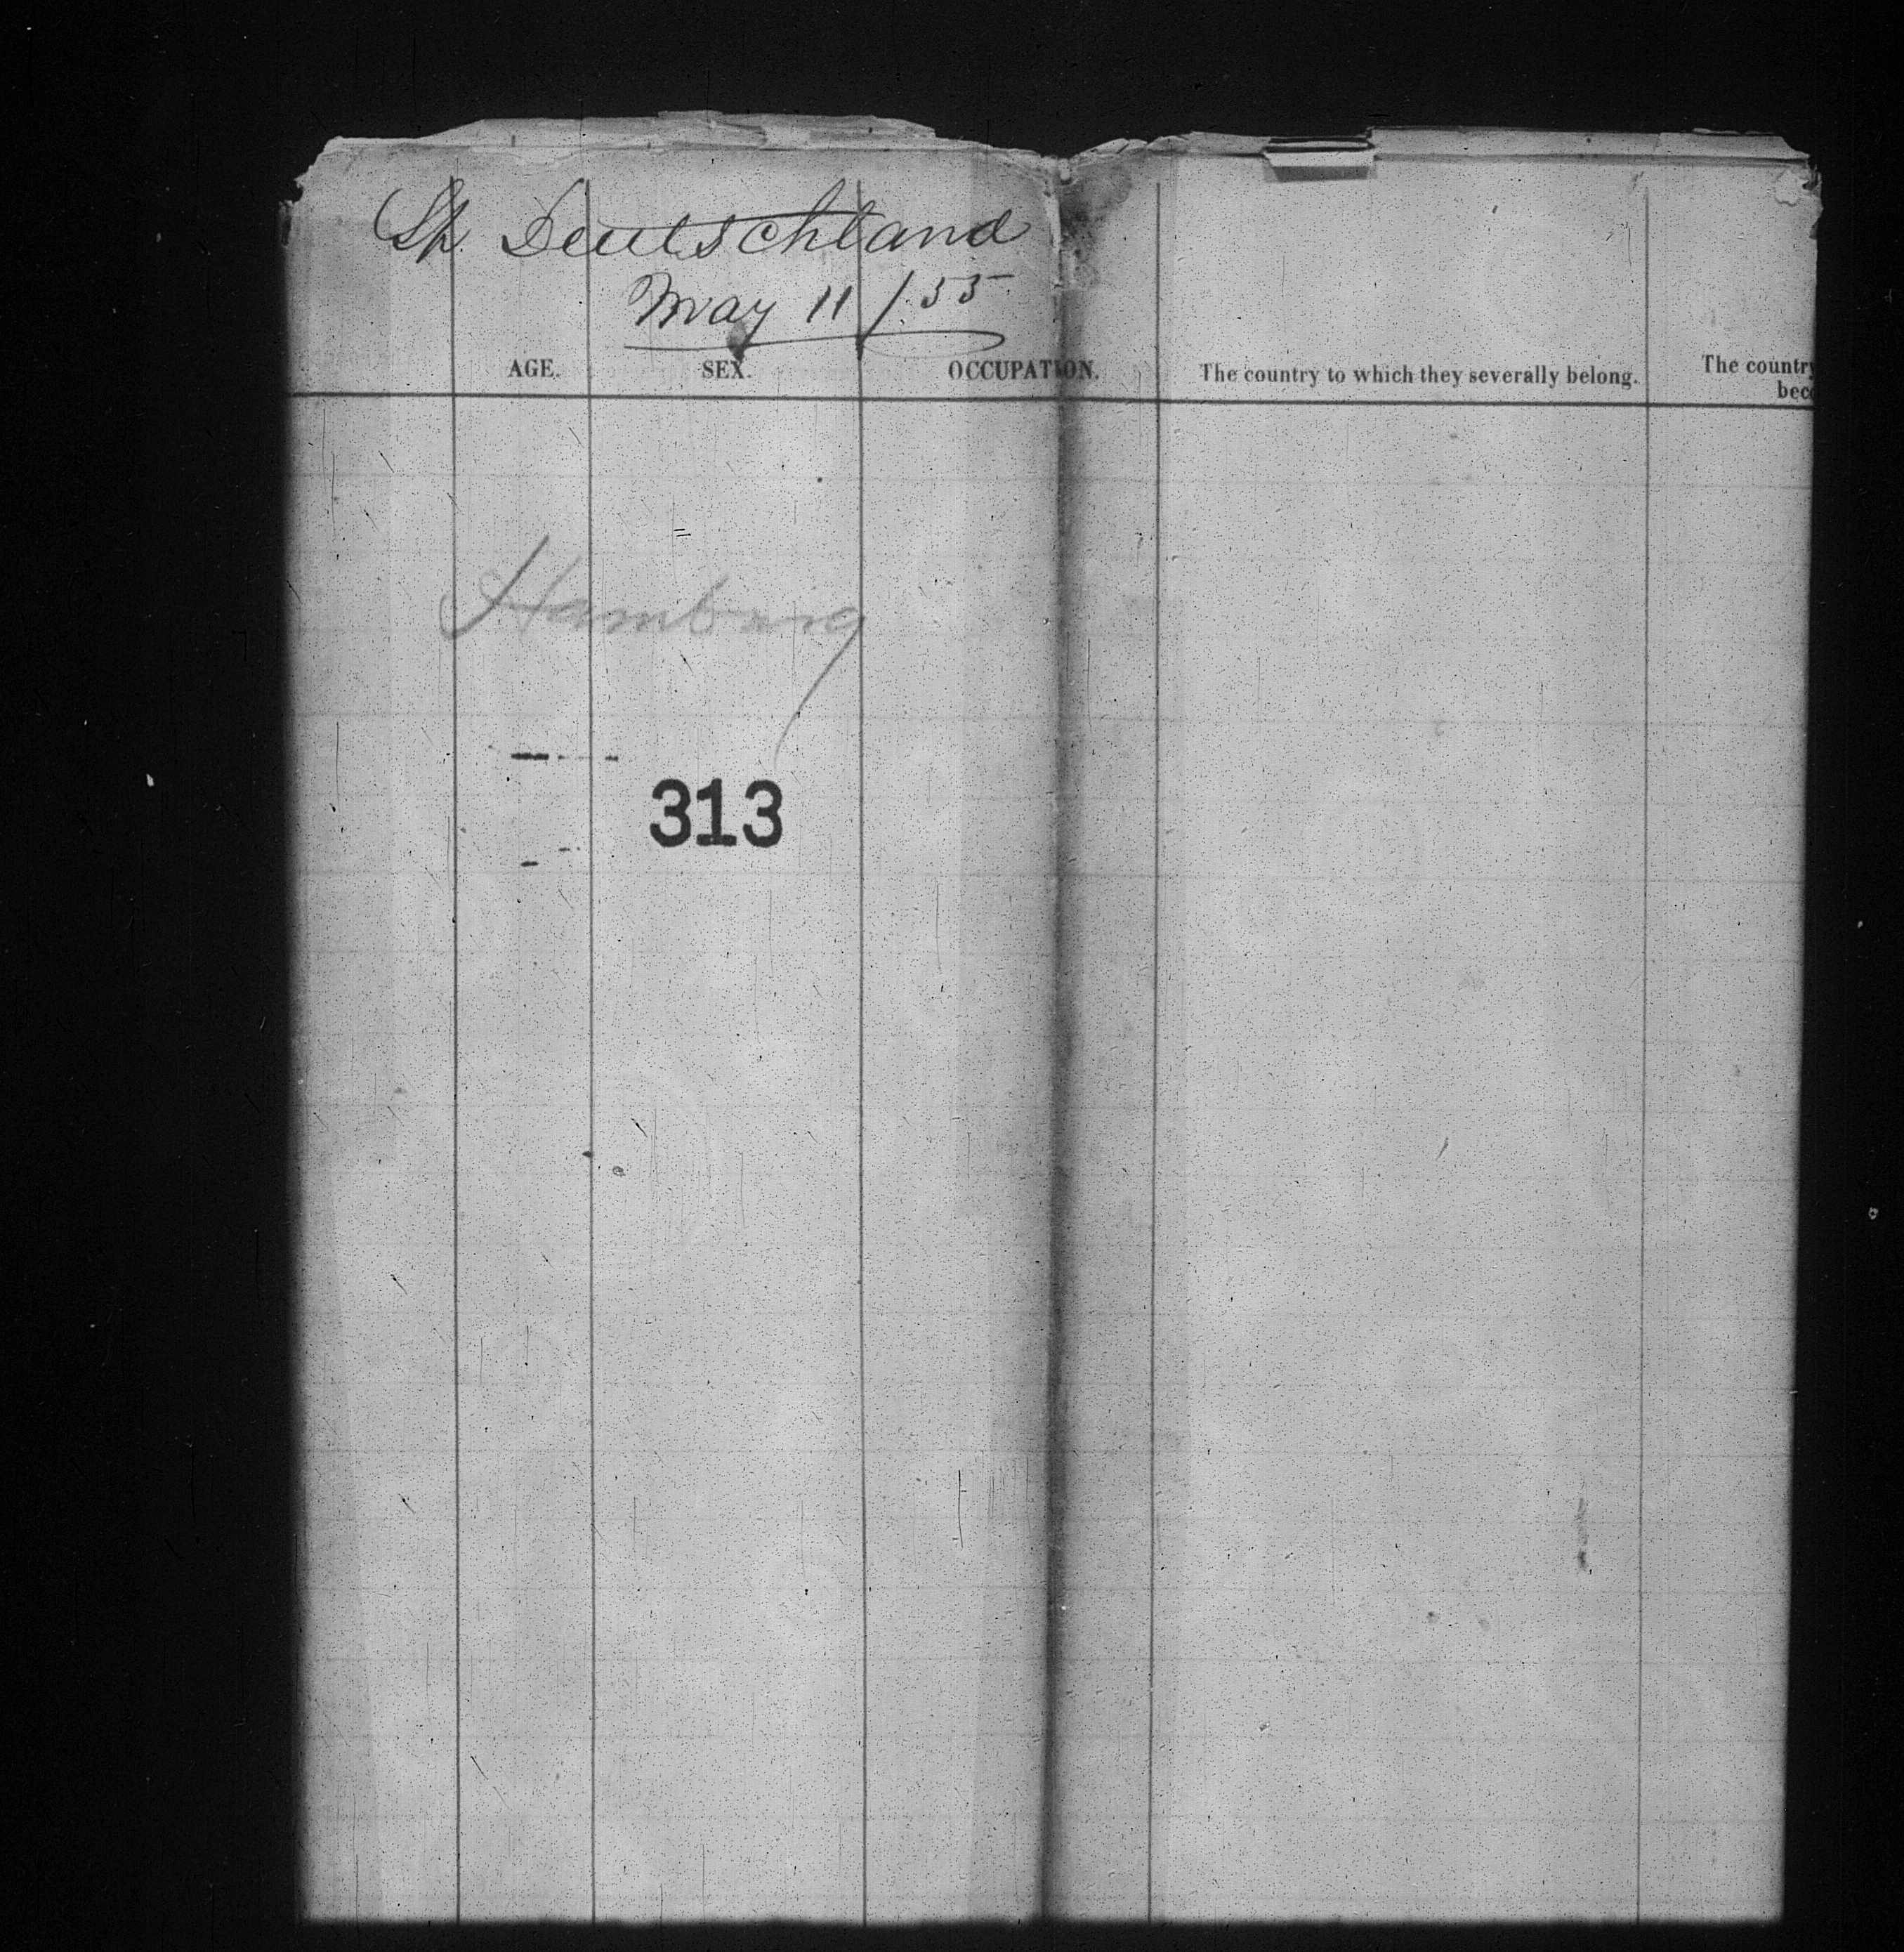 Sh. Deutschland
May 11 / 55
AGE. SEX. OCCUPATION. The country to which they severally belong. The country
beco
Hamburg
313